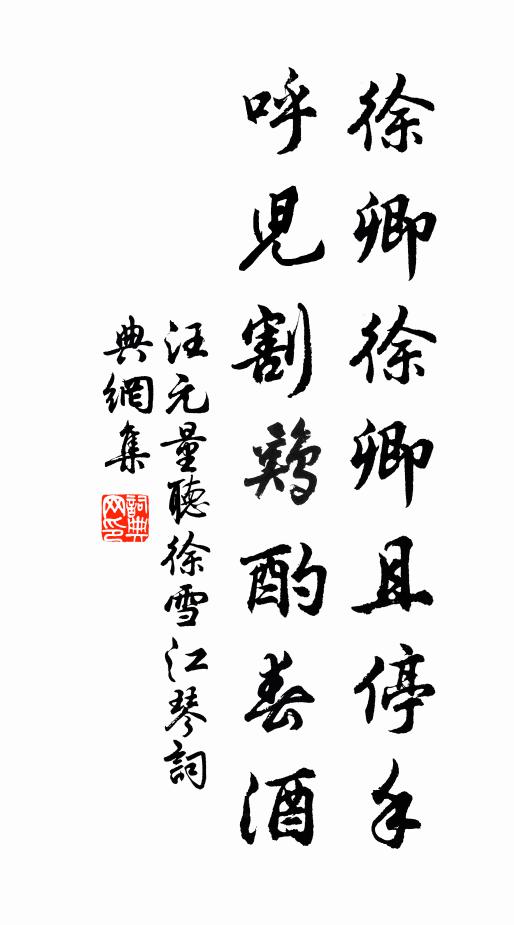 徐卿徐卿且停手
呼児割鷄酌春酒
汪元量聽徐雪江琴詞
典網集
詞典
网印